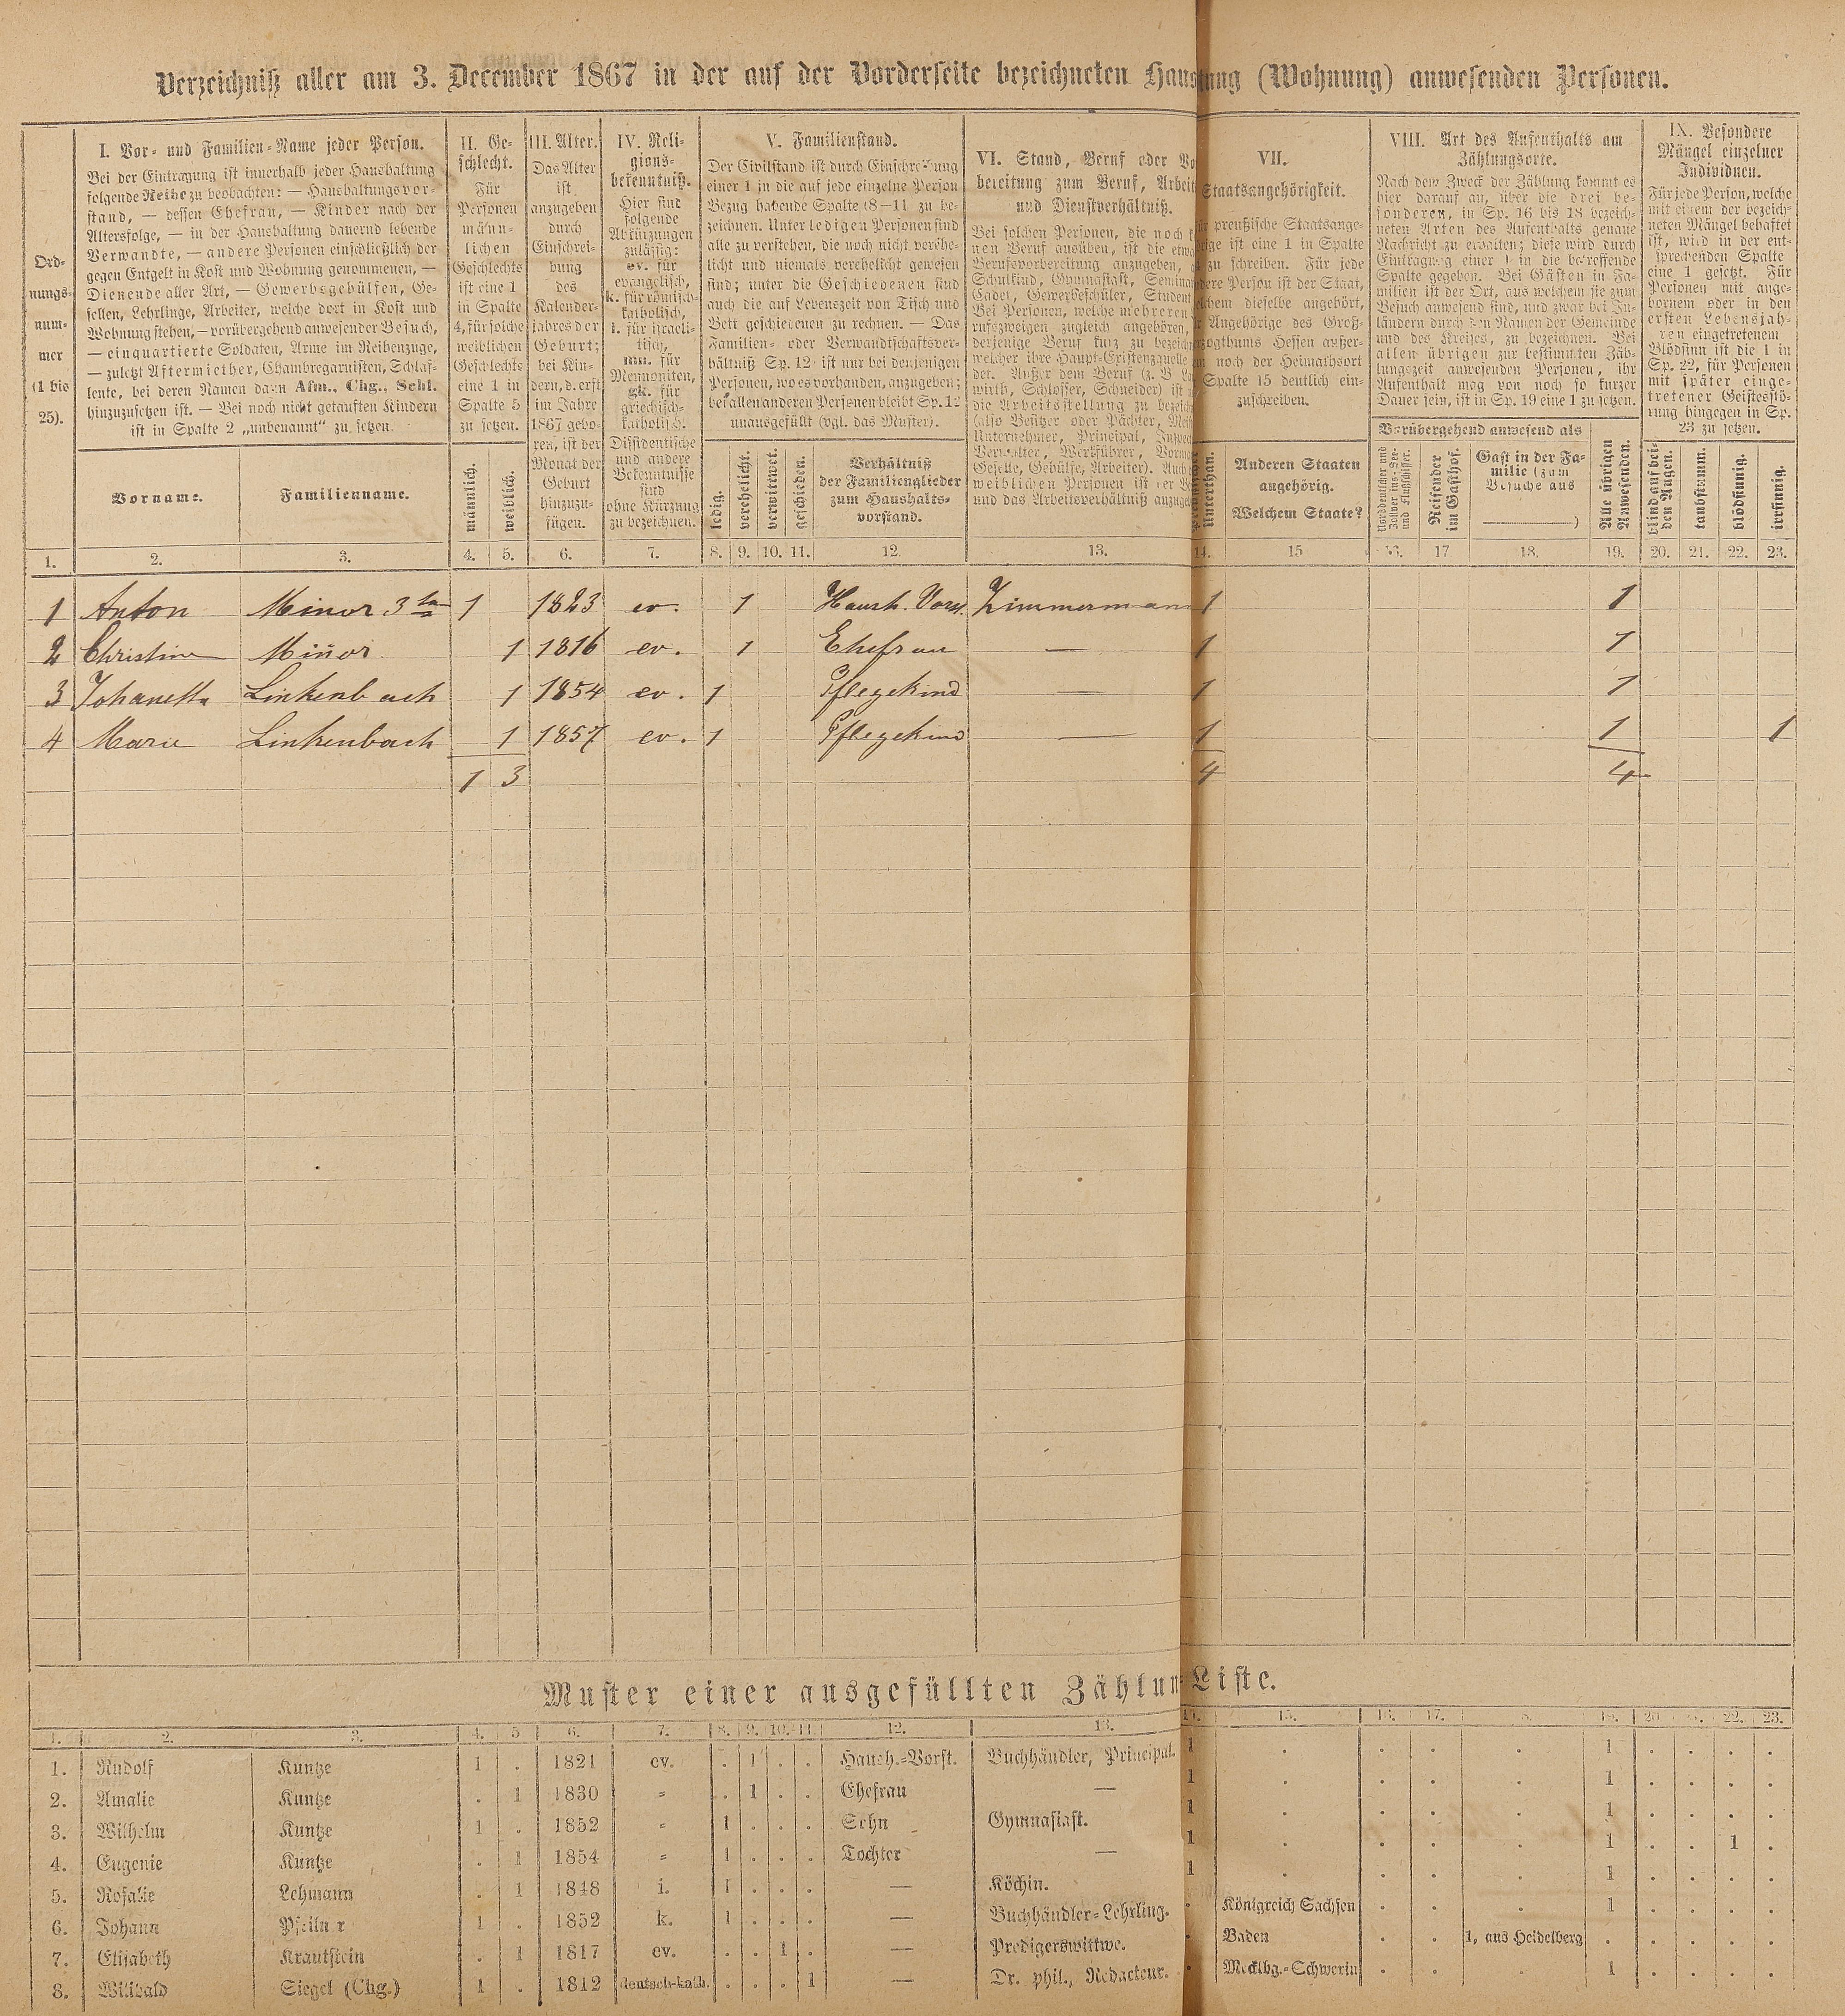 Verzeichniß aller am 3. December 1867 in der auf der Vorderseite bezeichneten Haus tung (Wohnung) anwesenden Personen.
Ord-
nungs-
num-
mer
(1 bis
25).
I. Vor- und Familien-Name jeder Person.
Bei der Eintragung ist innerhalb jeder Haushaltung
folgende Reihe zu beobachten: — Haushaltungsvor-
stand, — dessen Ehefrau, — Kinder nach der
Altersfolge, — in der Haushaltung dauernd lebende
Verwandte, — andere Personen einschließlich der
gegen Entgelt in Kost und Wohnung genommenen, —
Dienende aller Art, — Gewerbsgehülfen, Ge-
sellen, Lehrlinge, Arbeiter, welche dort in Kost und
Wohnung stehen, — vorübergehend anwesender Besuch,
— einquartierte Soldaten, Arme im Reihenzuge,
— zuletzt Aftermiether, Chambregarnisten, Schlaf-
leute, bei deren Namen dann Afm., Chg., Schl.
hinzuzusetzen ist. — Bei noch nicht getauften Kindern
ist in Spalte 2 „unbenannt“ zu setzen.
Vorname.
Familienname.
II. Ge-
schlecht.
Für
Personen
männ-
lichen
Geschlechts
ist eine 1
in Spalte
4, für solche
weiblichen
Geschlechts
eine 1 in
Spalte 5
zu setzen.
männlich.
weiblich.
III. Alter.
Das Alter
ist
anzugeben
durch
Einschrei-
bung
des
Kalender-
jahres der
Geburt;
bei Kin-
dern, d. erst
im Jahre
1867 gebo-
ren, ist der
Monat der
Geburt
hinzuzu-
fügen.
IV. Reli-
gions-
bekenntniß.
Hier sind
folgende
Abkürzungen
zulässig:
ev. für
evangelisch,
k. für römisch-
katholisch,
i. für israeli-
tisch,
mn. für
Mennoniten,
gk. für
griechisch-
katholisch.
Dissidentische
und andere
Bekenntnisse
sind
ohne Kürzung
zu bezeichnen.
V. Familienstand.
Der Civilstand ist durch Einschreibung
einer 1 in die auf jede einzelne Person
Bezug habende Spalte (8—11 zu be-
zeichnen. Unter ledigen Personen sind
alle zu verstehen, die noch nicht verehe-
licht und niemals verehelicht gewesen
sind; unter die Geschiedenen sind
auch die auf Lebenszeit von Tisch und
Bett geschiedenen zu rechnen. — Das
Familien- oder Verwandtschaftsver-
hältniß Sp. 12 ist nur bei denjenigen
Personen, wo es vorhanden, anzugeben;
bei allen anderen Personen bleibt Sp. 12
unausgefüllt (vgl. das Muster).
ledig.
verehelicht.
verwittwet.
geschieden.
Verhältniß
der Familienglieder
zum Haushalts-
vorstand.
VI. Stand, Beruf oder Vo
bereitung zum Beruf, Arbeit
und Dienstverhältniß.
Bei solchen Personen, die noch
nen Beruf ausüben, ist die etwa
Berufsvorbereitung anzugeben,
Schulkind, Gymnasiast, Seminar
Cadet, Gewerbeschüler, Student
Bei Personen, welche mehreren
rufszweigen zugleich angehören,
derjenige Beruf kurz zu bezeich
welcher ihre Haupt-Existenzquelle
det. Außer dem Beruf (z. B. La
wirth, Schlosser, Schneider) ist
die Arbeitsstellung zu bezeich
(also Besitzer oder Pächter, Mei
Unternehmer, Principal, Inspec
Verwalter, Werkführer, Vorma
Geselle, Gehülfe, Arbeiter). Auch
weiblichen Personen ist der Be
und das Arbeitsverhältniß anzuge
VII.
Staatsangehörigkeit.
preußische Staatsange-
rige ist eine 1 in Spalte
zu schreiben. Für jede
dere Person ist der Staat,
lchem dieselbe angehört,
Angehörige des Groß-
zogthums Hessen außer-
noch der Heimathsort
Spalte 15 deutlich ein-
zuschreiben.
unterthan.
Anderen Staaten
angehörig.
Welchem Staate?
VIII. Art des Aufenthalts am
Zählungsorte.
Nach dem Zweck der Zählung kommt es
hier darauf an, über die drei be-
sonderen, in Sp. 16 bis 18 bezeich-
neten Arten des Aufenthalts genaue
Nachricht zu erhalten; diese wird durch
Eintragung einer 1 in die betreffende
Spalte gegeben. Bei Gästen in Fa-
milien ist der Ort, aus welchem sie zum
Besuch anwesend sind, und zwar bei In-
ländern durch den Namen der Gemeinde
und des Kreises, zu bezeichnen. Bei
allen übrigen zur bestimmten Zäh-
lungszeit anwesenden Personen, ihr
Aufenthalt mag von noch so kurzer
Dauer sein, ist in Sp. 19 eine 1 zu setzen.
Vorübergehend anwesend als
Norddeutscher und
Zollver.ins-See-
und Flußschiffer.
Reisender
im Gasthof.
Gast in der Fa-
milie (zum
Besuche aus
)
Alle übrigen
Anwesenden.
IX. Besondere
Mängel einzelner
Individuen.
Für jede Person, welche
mit einem der bezeich-
neten Mängel behaftet
ist, wird in der ent-
sprechenden Spalte
eine 1 gesetzt. Für
Personen mit ange-
bornem oder in den
ersten Lebensjah-
ren eingetretenem
Blödsinn ist die 1 in
Sp. 22, für Personen
mit später einge-
tretener Geistesstö-
rung hingegen in Sp.
23 zu setzen.
blind auf bei-
den Augen.
taubstumm.
blödsinnig.
irrsinnig.
1. 2. 3. 4. 5. 6. 7. 8. 9. 10. 11. 12. 13. 14. 15 16. 17 18. 19. 20. 21. 22. 23.
1 Anton Minor 3 1 1823 ev. 1 Haush. Vorst. Zimmermann 1 1
2 Christine Minor 1 1816 ev. 1 Ehefrau — 1 1
3 Johanetta Linkenbach 1 1854 ev. 1 Pflegekind — 1 1
4 Marie Linkenbach 1 1857 ev. 1 Pflegekind — 1 1 1
1 3 4 4
Muster einer ausgefüllten Zählun Liste.
1. 2. 3. 4. 5 6. 7. 8. 9. 10. 11 12. 13. 14. 15. 16. 17. 8. 19. 20. 22. 23.
1. Rudolf Kuntze 1 . 1821 ev. . 1 . . Haush.-Vorst. Buchhändler, Principal. 1 . . . . 1 . . . .
2. Amalie Kuntze . 1 1830 „ . 1 . . Ehefrau — 1 . . . . 1 . . . .
3. Wilhelm Kuntze 1 . 1852 „ 1 . . . Sohn Gymnasiast. 1 . . . . 1 . . . .
4. Eugenie Kuntze . 1 1854 „ 1 . . . Tochter — 1 . . . . 1 . . 1 .
5. Rosalie Lehmann . 1 1848 i. 1 . . . — Köchin. 1 . . . . 1 . . . .
6. Johann Pfeilner 1 . 1852 k. 1 . . . — Buchhändler-Lehrling. . Königreich Sachsen . . . 1 . . . .
7. Elisabeth Krautstein . 1 1817 ev. . . 1 . — Predigerswittwe. . Baden . . 1, aus Heidelberg . . . . .
8. Wilibald Siegel (Chg.) 1 . 1812 deutsch-kath. . . . 1 — Dr. phil., Redacteur. . Mecklbg.-Schwerin . . . 1 . . . .